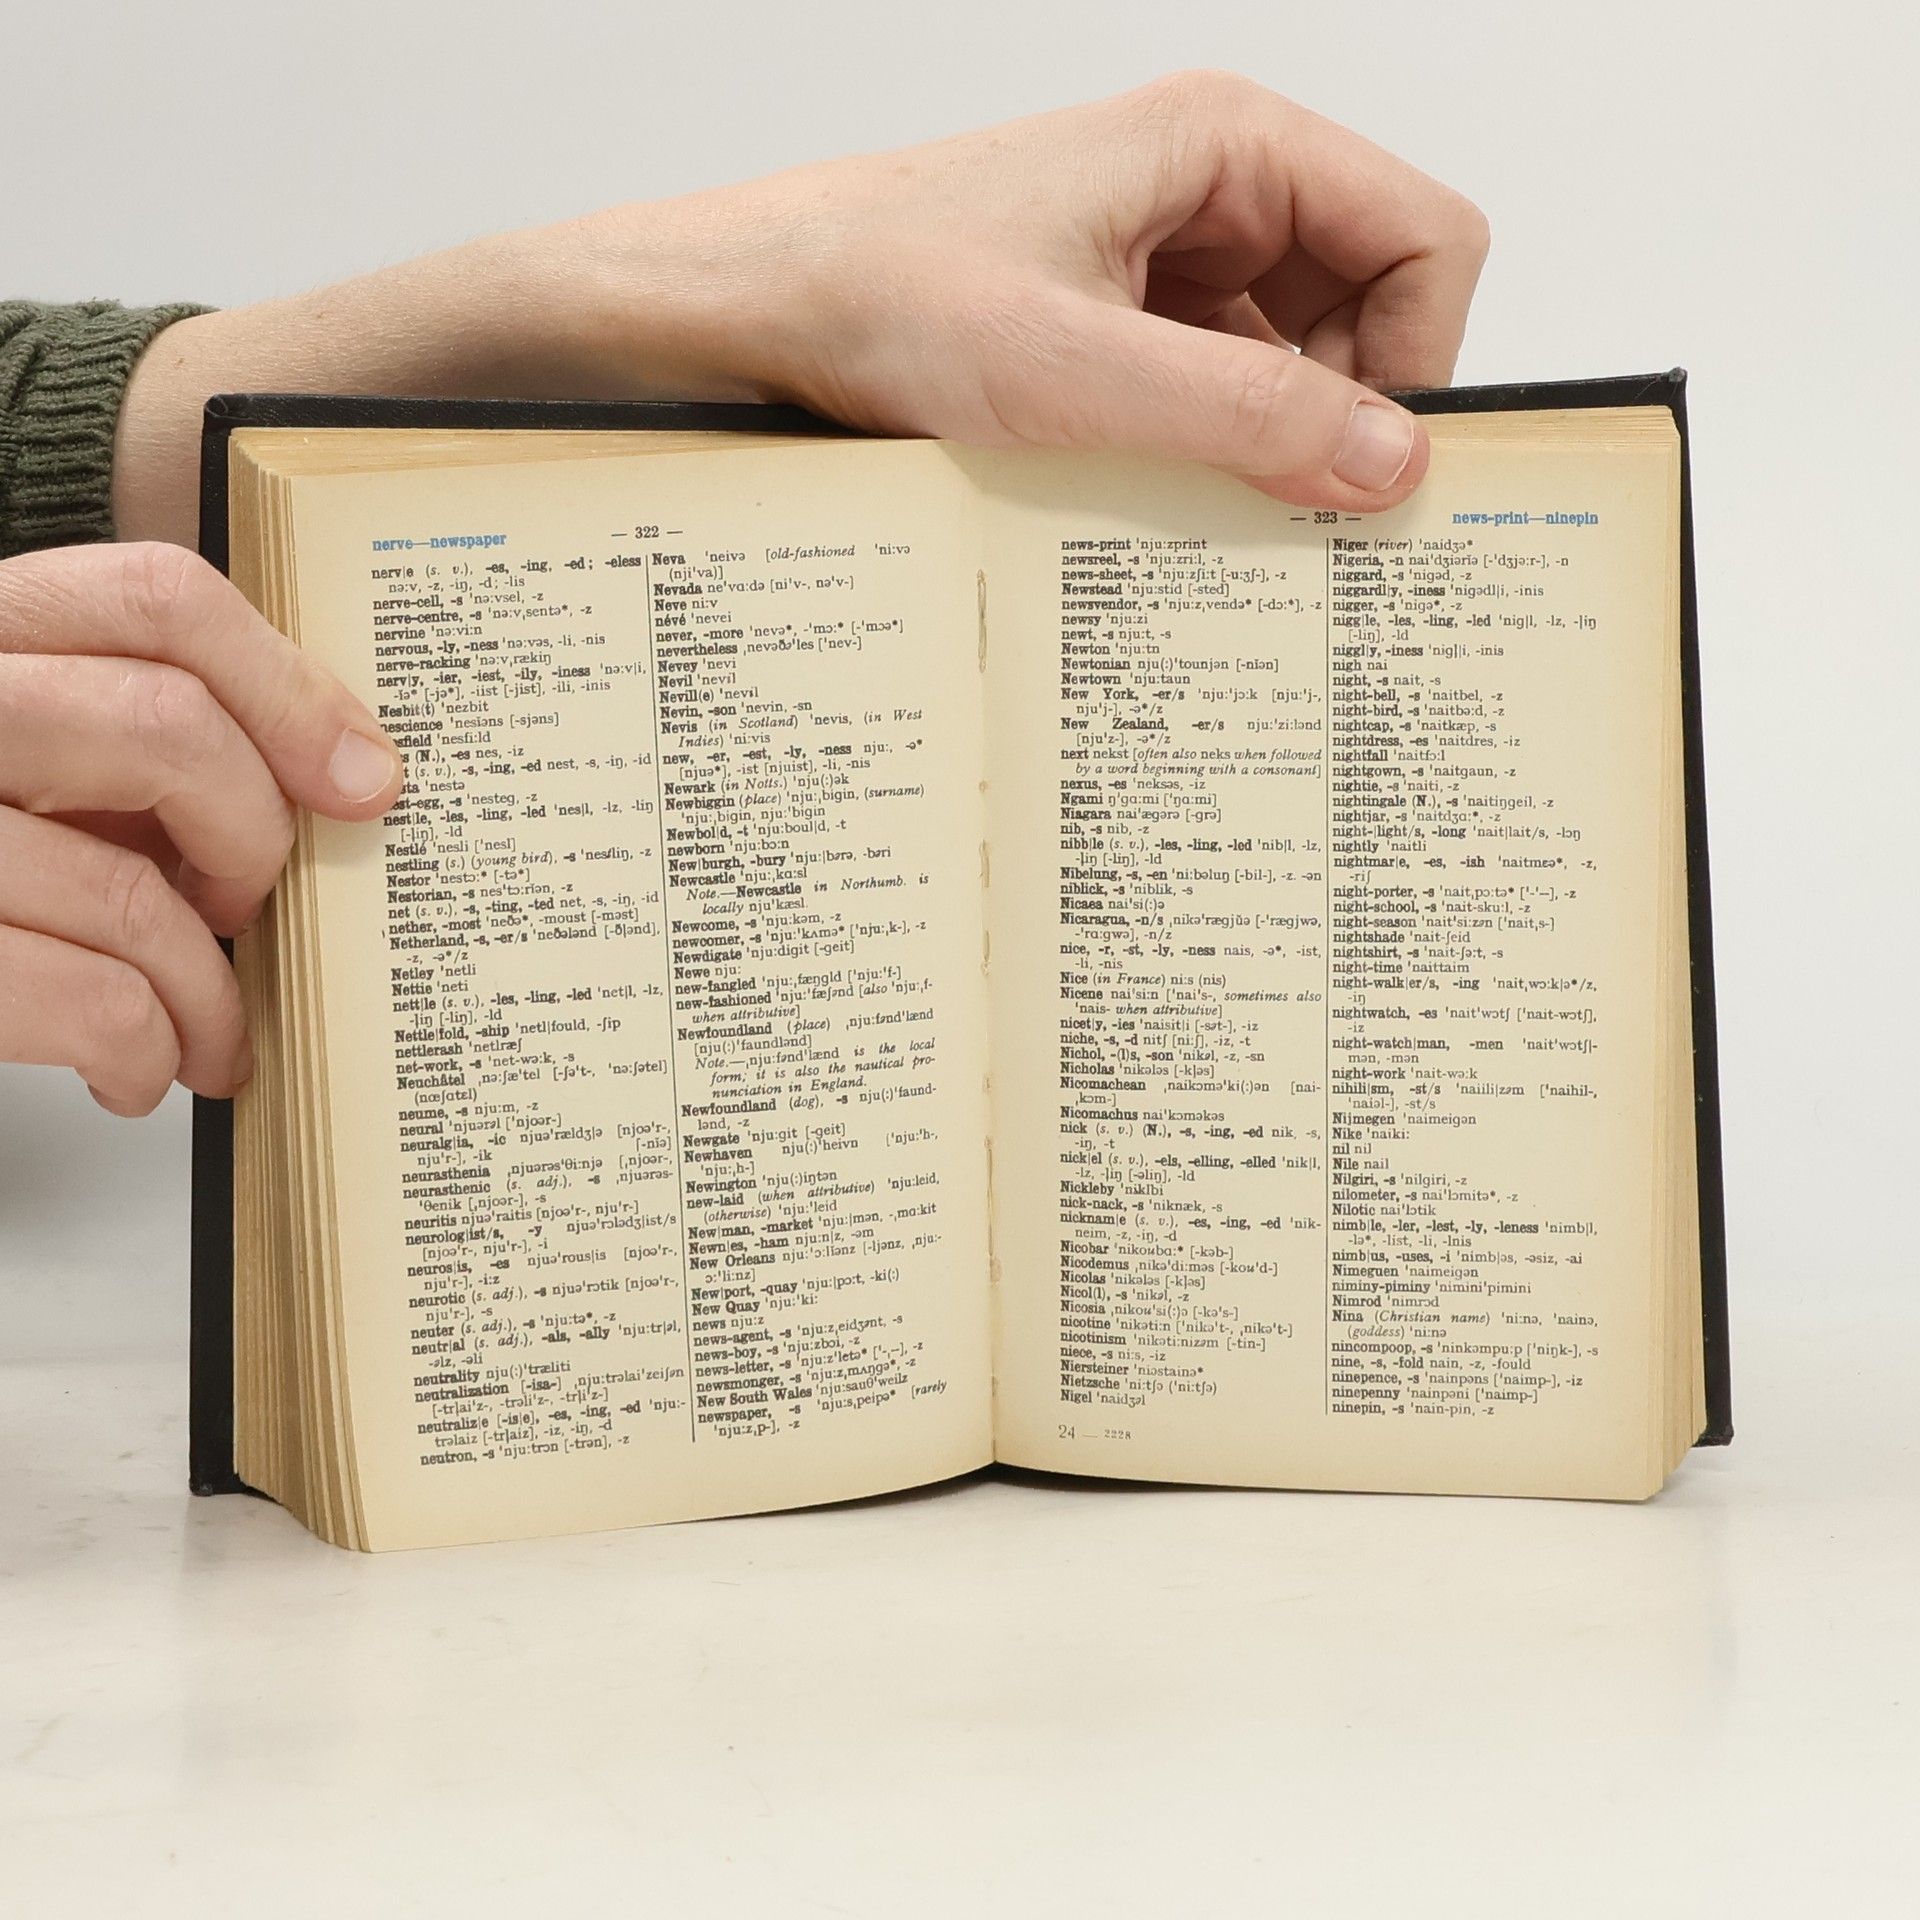 nerve—newspaper
— 322 —
nerv|e (s. v.), -es, -ing, -ed; -eless
nə:v, -z, -iŋ, -d; -lis
nerve-cell, -s 'nə:vsel, -z
nerve-centre, -s 'nə:vˌsentə*, -z
nervine 'nə:vi:n
nervous, -ly, -ness 'nə:vəs, -li, -nis
nerve-racking 'nə:vˌrækiŋ
nerv|y, -ier, -iest, -ily, -iness 'nə:v|i,
-ĭə* [-jə*], -iist [-jist], -ili, -inis
Nesbit(t) 'nezbit
nescience 'nesĭəns [-sjəns]
sfield 'nesfi:ld
s (N.), -es nes, -iz
t (s. v.), -s, -ing, -ed nest, -s, -iŋ, -id
sta 'nestə
est-egg, -s 'nesteg, -z
nest|le, -les, -ling, -led 'nes|l, -lz, -liŋ
[-l̩iŋ], -ld
Nestlé 'nesli ['nesl]
nestling (s.) (young bird), -s 'nesliŋ, -z
Nestor 'nestɔ:* [-tə*]
Nestorian, -s nes'tɔ:rĭən, -z
net (s. v.), -s, -ting, -ted net, -s, -iŋ, -id
nether, -most 'neðə*, -moust [-məst]
Netherland, -s, -er/s 'neðələnd [-ð|ənd],
-z, -ə*/z
Netley 'netli
Nettie 'neti
nett|le (s. v.), -les, -ling, -led 'net|l, -lz,
-l̩iŋ [-liŋ], -ld
Nettle|fold, -ship 'netl|fould, -ʃip
nettlerash 'netlræʃ
net-work, -s 'net-wə:k, -s
Neuchâtel ˌnə:ʃæ'tel [-ʃə't-, 'nə:ʃətel]
(nœʃɑtɛl)
neume, -s nju:m, -z
neural 'njuərəl ['njoər-]
neuralg|ia, -ic njuə'rældʒ|ə [njoə'r-,
nju'r-], -ik [-nĭə]
neurasthenia ˌnjuərəs'θi:njə [ˌnjoər-,
neurasthenic (s. adj.), -s ˌnjuərəs-
'θenik [ˌnjoər-], -s
neuritis njuə'raitis [njoə'r-, nju'r-]
neurolog|ist/s, -y njuə'rɔlədʒ|ist/s
[njoə'r-, nju'r-], -i
neuros|is, -es njuə'rous|is [njoə'r-,
nju'r-], -i:z
neurotic (s. adj.), -s njuə'rɔtik [njoə'r-,
nju'r-], -s
neuter (s. adj.), -s 'nju:tə*, -z
neutr|al (s. adj.), -als, -ally 'nju:tr|əl,
-əlz, -əli
neutrality nju(:)'træliti
neutralization [-isa-] ˌnju:trəlai'zeiʃən
[-tr|ai'z-, -trəli'z-, -tr|i'z-]
neutraliz|e [-is|e], -es, -ing, -ed 'nju:-
trəlaiz [-tr|aiz], -iz, -iŋ, -d
neutron, -s 'nju:trɔn [-trən], -z
Neva 'neivə [old-fashioned 'ni:və
(nji'va)]
Nevada ne'vɑ:də [ni'v-, nə'v-]
Neve ni:v
névé 'nevei
never, -more 'nevə*, -'mɔ:* [-'mɔə*]
nevertheless ˌnevəðə'les ['nev-]
Nevey 'nevi
Nevil 'nevil
Nevill(e) 'nevil
Nevin, -son 'nevin, -sn
Nevis (in Scotland) 'nevis, (in West
Indies) 'ni:vis
new, -er, -est, -ly, -ness nju:, -ə*
[njuə*], -ist [njuist], -li, -nis
Newark (in Notts.) 'nju(:)ək
Newbiggin (place) 'nju:ˌbigin, (surname)
'nju:ˌbigin, nju:'bigin
Newbol|d, -t 'nju:boul|d, -t
newborn 'nju:bɔ:n
New|burgh, -bury 'nju:|bərə, -bəri
Newcastle 'nju:ˌkɑ:sl
Note.—Newcastle in Northumb. is
locally nju'kæsl.
Newcome, -s 'nju:kəm, -z
newcomer, -s 'nju:'kʌmə* ['nju:ˌk-], -z
Newdigate 'nju:digit [-geit]
Newe nju:
new-fangled 'nju:ˌfæŋgld ['nju:'f-]
new-fashioned 'nju:'fæʃənd [also 'nju:ˌf-
when attributive]
Newfoundland (place) ˌnju:fənd'lænd
[nju(:)'faundlənd]
Note.—ˌnju:fənd'lænd is the local
form; it is also the nautical pro-
nunciation in England.
Newfoundland (dog), -s nju(:)'faund-
lənd, -z
Newgate 'nju:git [-geit]
Newhaven nju(:)'heivn ['nju:'h-,
'nju:ˌh-]
Newington 'nju(:)iŋtən
new-laid (when attributive) 'nju:leid,
(otherwise) 'nju:'leid
New|man, -market 'nju:|mən, -ˌmɑ:kit
Newn|es, -ham nju:n|z, -əm
New Orleans nju:'ɔ:lĭənz [-ljənz, ˌnju:-
ɔ:'li:nz]
New|port, -quay 'nju:|pɔ:t, -ki(:)
New Quay 'nju:'ki:
news nju:z
news-agent, -s 'nju:zˌeidʒənt, -s
news-boy, -s 'nju:zbɔi, -z
news-letter, -s 'nju:z'letə* ['-ˌ--], -z
newsmonger, -s 'nju:zˌmʌŋgə*, -z
New South Wales 'nju:sauθ'weilz
newspaper, -s 'nju:sˌpeipə* [rarely
'nju:zˌp-], -z
— 323 —
news-print—ninepin
news-print 'nju:zprint
newsreel, -s 'nju:zri:l, -z
news-sheet, -s 'nju:zʃi:t [-u:ʒʃ-], -z
Newstead 'nju:stid [-sted]
newsvendor, -s 'nju:zˌvendə* [-dɔ:*], -z
newsy 'nju:zi
newt, -s nju:t, -s
Newton 'nju:tn
Newtonian nju(:)'tounjən [-nĭən]
Newtown 'nju:taun
New York, -er/s 'nju:'jɔ:k [nju:'j-,
nju'j-], -ə*/z
New Zealand, -er/s nju:'zi:lənd
[nju'z-], -ə*/z
next nekst [often also neks when followed
by a word beginning with a consonant]
nexus, -es 'neksəs, -iz
Ngami ŋ'gɑ:mi ['ŋɑ:mi]
Niagara nai'ægərə [-grə]
nib, -s nib, -z
nibb|le (s. v.), -les, -ling, -led 'nib|l, -lz,
-l̩iŋ [-liŋ], -ld
Nibelung, -s, -en 'ni:bəluŋ [-bil-], -z. -ən
niblick, -s 'niblik, -s
Nicaea nai'si(:)ə
Nicaragua, -n/s ˌnikə'rægjŭə [-'rægjwə,
-'rɑ:gwə], -n/z
nice, -r, -st, -ly, -ness nais, -ə*, -ist,
-li, -nis
Nice (in France) ni:s (nis)
Nicene nai'si:n ['nai's-, sometimes also
'nais- when attributive]
nicet|y, -ies 'naisit|i [-sət-], -iz
niche, -s, -d nitʃ [ni:ʃ], -iz, -t
Nichol, -(l)s, -son 'nikəl, -z, -sn
Nicholas 'nikələs [-k|əs]
Nicomachean ˌnaikɔmə'ki(:)ən [nai-
ˌkɔm-]
Nicomachus nai'kɔməkəs
nick (s. v.) (N.), -s, -ing, -ed nik, -s,
-iŋ, -t
nick|el (s. v.), -els, -elling, -elled 'nik|l,
-lz, -l̩iŋ [-əliŋ], -ld
Nickleby 'niklbi
nick-nack, -s 'niknæk, -s
nicknam|e (s. v.), -es, -ing, -ed 'nik-
neim, -z, -iŋ, -d
Nicobar 'nikoubɑ:* [-kəb-]
Nicodemus ˌnikə'di:məs [-kou'd-]
Nicolas 'nikələs [-k|əs]
Nicol(l), -s 'nikəl, -z
Nicosia ˌnikou'si(:)ə [-kə's-]
nicotine 'nikəti:n ['nikə't-, ˌnikə't-]
nicotinism 'nikəti:nizəm [-tin-]
niece, -s ni:s, -iz
Niersteiner 'niəstainə*
Nietzsche 'ni:tʃə ('ni:tʃə)
Nigel 'naidʒəl
Niger (river) 'naidʒə*
Nigeria, -n nai'dʒiərĭə [-'dʒjə:r-], -n
niggard, -s 'nigəd, -z
niggardl|y, -iness 'nigədl|i, -inis
nigger, -s 'nigə*, -z
nigg|le, -les, -ling, -led 'nig|l, -lz, -l̩iŋ
[-liŋ], -ld
niggl|y, -iness 'nigl|i, -inis
nigh nai
night, -s nait, -s
night-bell, -s 'naitbel, -z
night-bird, -s 'naitbə:d, -z
nightcap, -s 'naitkæp, -s
nightdress, -es 'naitdres, -iz
nightfall 'naitfɔ:l
nightgown, -s 'naitgaun, -z
nightie, -s 'naiti, -z
nightingale (N.), -s 'naitiŋgeil, -z
nightjar, -s 'naitdʒɑ:*, -z
night-|light/s, -long 'nait|lait/s, -lɔŋ
nightly 'naitli
nightmar|e, -es, -ish 'naitmɛə*, -z,
-riʃ
night-porter, -s 'naitˌpɔ:tə* ['-'--], -z
night-school, -s 'nait-sku:l, -z
night-season 'nait'si:zən ['naitˌs-]
nightshade 'nait-ʃeid
nightshirt, -s 'nait-ʃə:t, -s
night-time 'naittaim
night-walk|er/s, -ing 'naitˌwɔ:k|ə*/z,
-iŋ
nightwatch, -es 'nait'wɔtʃ ['nait-wɔtʃ],
-iz
night-watch|man, -men 'nait'wɔtʃ|-
mən, -mən
night-work 'nait-wə:k
nihili|sm, -st/s 'naiili|zəm ['naihil-,
'naiəl-], -st/s
Nijmegen 'naimeigən
Nike 'naiki:
nil nil
Nile nail
Nilgiri, -s 'nilgiri, -z
nilometer, -s nai'lɔmitə*, -z
Nilotic nai'lɔtik
nimb|le, -ler, -lest, -ly, -leness 'nimb|l,
-lə*, -list, -li, -lnis
nimb|us, -uses, -i 'nimb|əs, -əsiz, -ai
Nimeguen 'naimeigən
niminy-piminy 'nimini'pimini
Nimrod 'nimrɔd
Nina (Christian name) 'ni:nə, 'nainə,
(goddess) 'ni:nə
nincompoop, -s 'ninkəmpu:p ['niŋk-], -s
nine, -s, -fold nain, -z, -fould
ninepence, -s 'nainpəns ['naimp-], -iz
ninepenny 'nainpəni ['naimp-]
ninepin, -s 'nain-pin, -z
24 — 2228